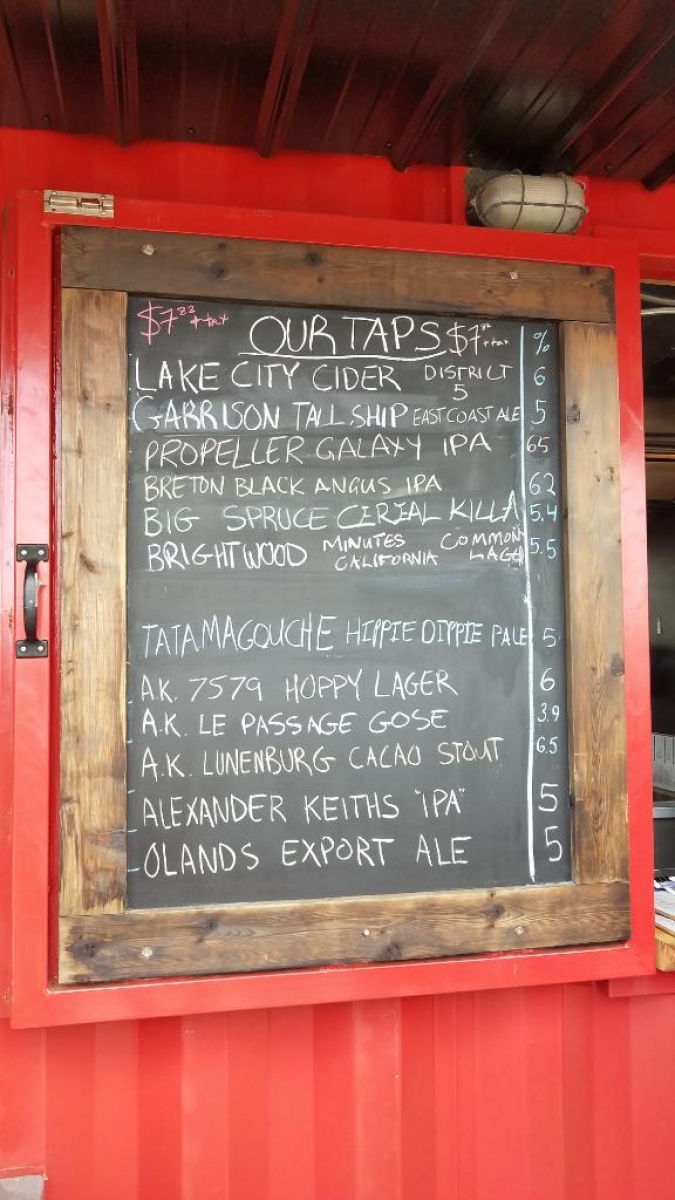 $7 + tax OUR TAPS $7 + tax %
LAKE CITY CIDER DISTRICT 5 6
GARRISON TALL SHIP EAST COAST ALE 5
PROPELLER GALAXY IPA 65
BRETON BLACK ANGUS IPA 62
BIG SPRUCE CERIAL KILLA 5.4
BRIGHTWOOD MINUTES COMMON 5.5
CALIFORNIA LAGER
TATAMAGOUCHE HIPPIE DIPPIE PALE 5
A.K. 7579 HOPPY LAGER 6
A.K. LE PASSAGE GOSE 3.9
A.K. LUNENBURG CACAO STOUT 6.5
ALEXANDER KEITHS "IPA" 5
OLANDS EXPORT ALE 5